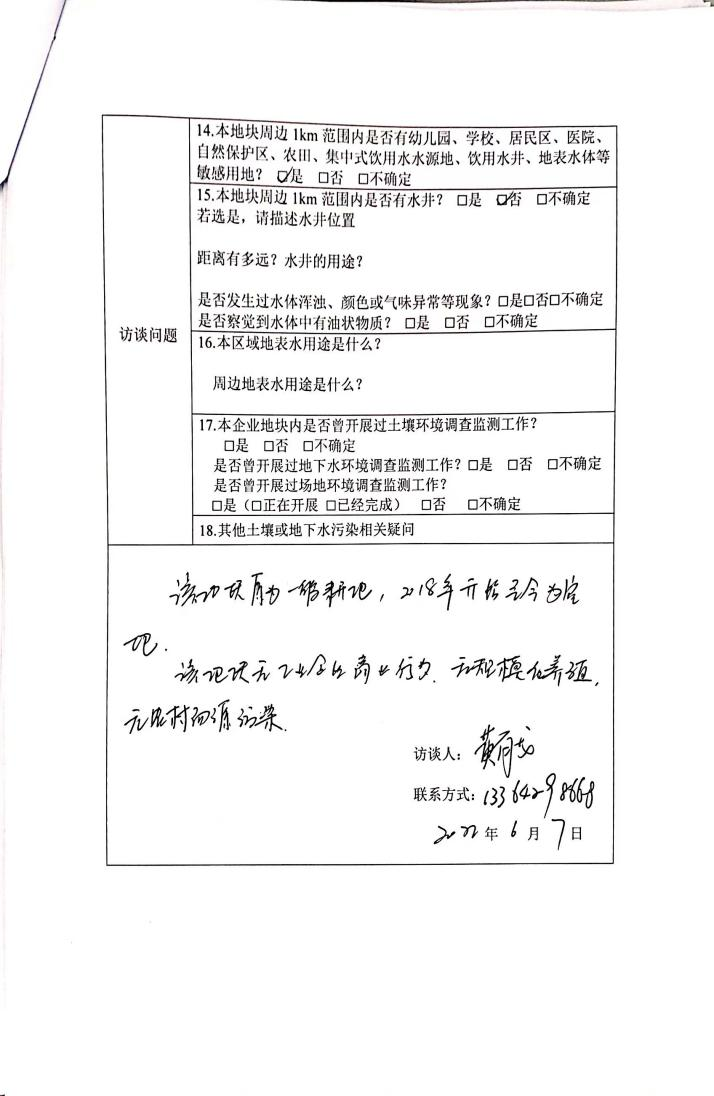 访谈问题
14.本地块周边 1km 范围内是否有幼儿园、学校、居民区、医院、
自然保护区、农田、集中式饮用水水源地、饮用水井、地表水体等
敏感用地？ ☑是 □否 □不确定
15.本地块周边 1km 范围内是否有水井？ □是 ☑否 □不确定
若选是，请描述水井位置
距离有多远？水井的用途？
是否发生过水体浑浊、颜色或气味异常等现象？□是□否□不确定
是否察觉到水体中有油状物质？ □是 □否 □不确定
16.本区域地表水用途是什么？
周边地表水用途是什么？
17.本企业地块内是否曾开展过土壤环境调查监测工作？
□是 □否 □不确定
是否曾开展过地下水环境调查监测工作？□是 □否 □不确定
是否曾开展过场地环境调查监测工作？
□是（□正在开展 □已经完成） □否 □不确定
18.其他土壤或地下水污染相关疑问
该地块原为一般耕地，2018年开始至今为空
地.
该地块无工业企业商业行为.无规模化养殖,
无农村面源污染.
访谈人：黄
联系方式：13364298668
2022年6月7日